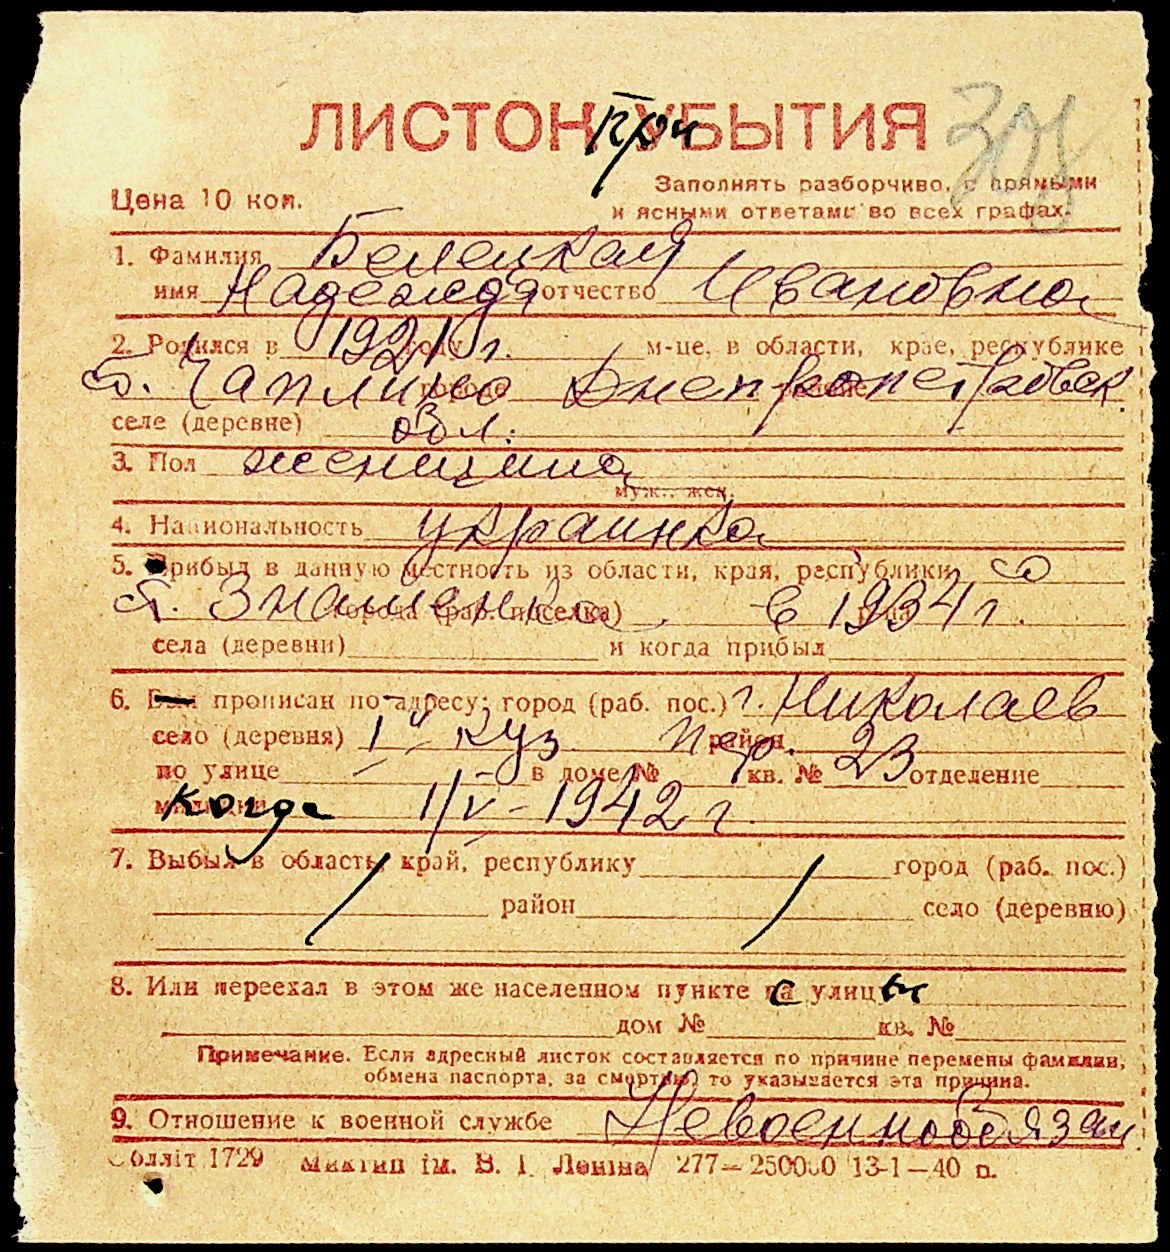 ЛИСТОК УБЫТИЯ
при
Цена 10 коп.
Заполнять разборчиво, с прямыми
и ясными ответами во всех графах.
1. Фамилия Белецкая
имя Надежда отчество Ивановна
2. Родился в 1921 г. году м-це, в области, крае, республике
ст. Чаплино городе Днепропетровск. районе
селе (деревне) обл.
3. Пол женщина
муж., жен.
4. Национальность украинка
5. Прибыл в данную местность из области, края, республики со
ст. Знаменка города (раб. поселка) в 1934 г. района
села (деревни) и когда прибыл
6. Был прописан по адресу: город (раб. пос.) г. Николаев
село (деревня) 1й Куз. пер. район 23
по улице в доме № кв. № отделение
милиции когда 1/V-1942 г.
7. Выбыл в область, край, республику город (раб. пос.)
район село (деревню)
8. Или переехал в этом же населенном пункте на с улицы
дом № кв. №
Примечание. Если адресный листок составляется по причине перемены фамилии,
обмена паспорта, за смертью, то указывается эта причина.
9. Отношение к военной службе Невоеннообязан
Облліт 1729 Миктип ім. В. І. Леніна 277—250000 13-1-40 р.